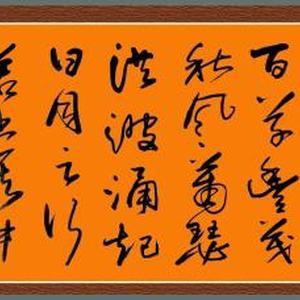 百草豐茂
秋風蕭瑟
洪波涌起
日月之行
若出其中